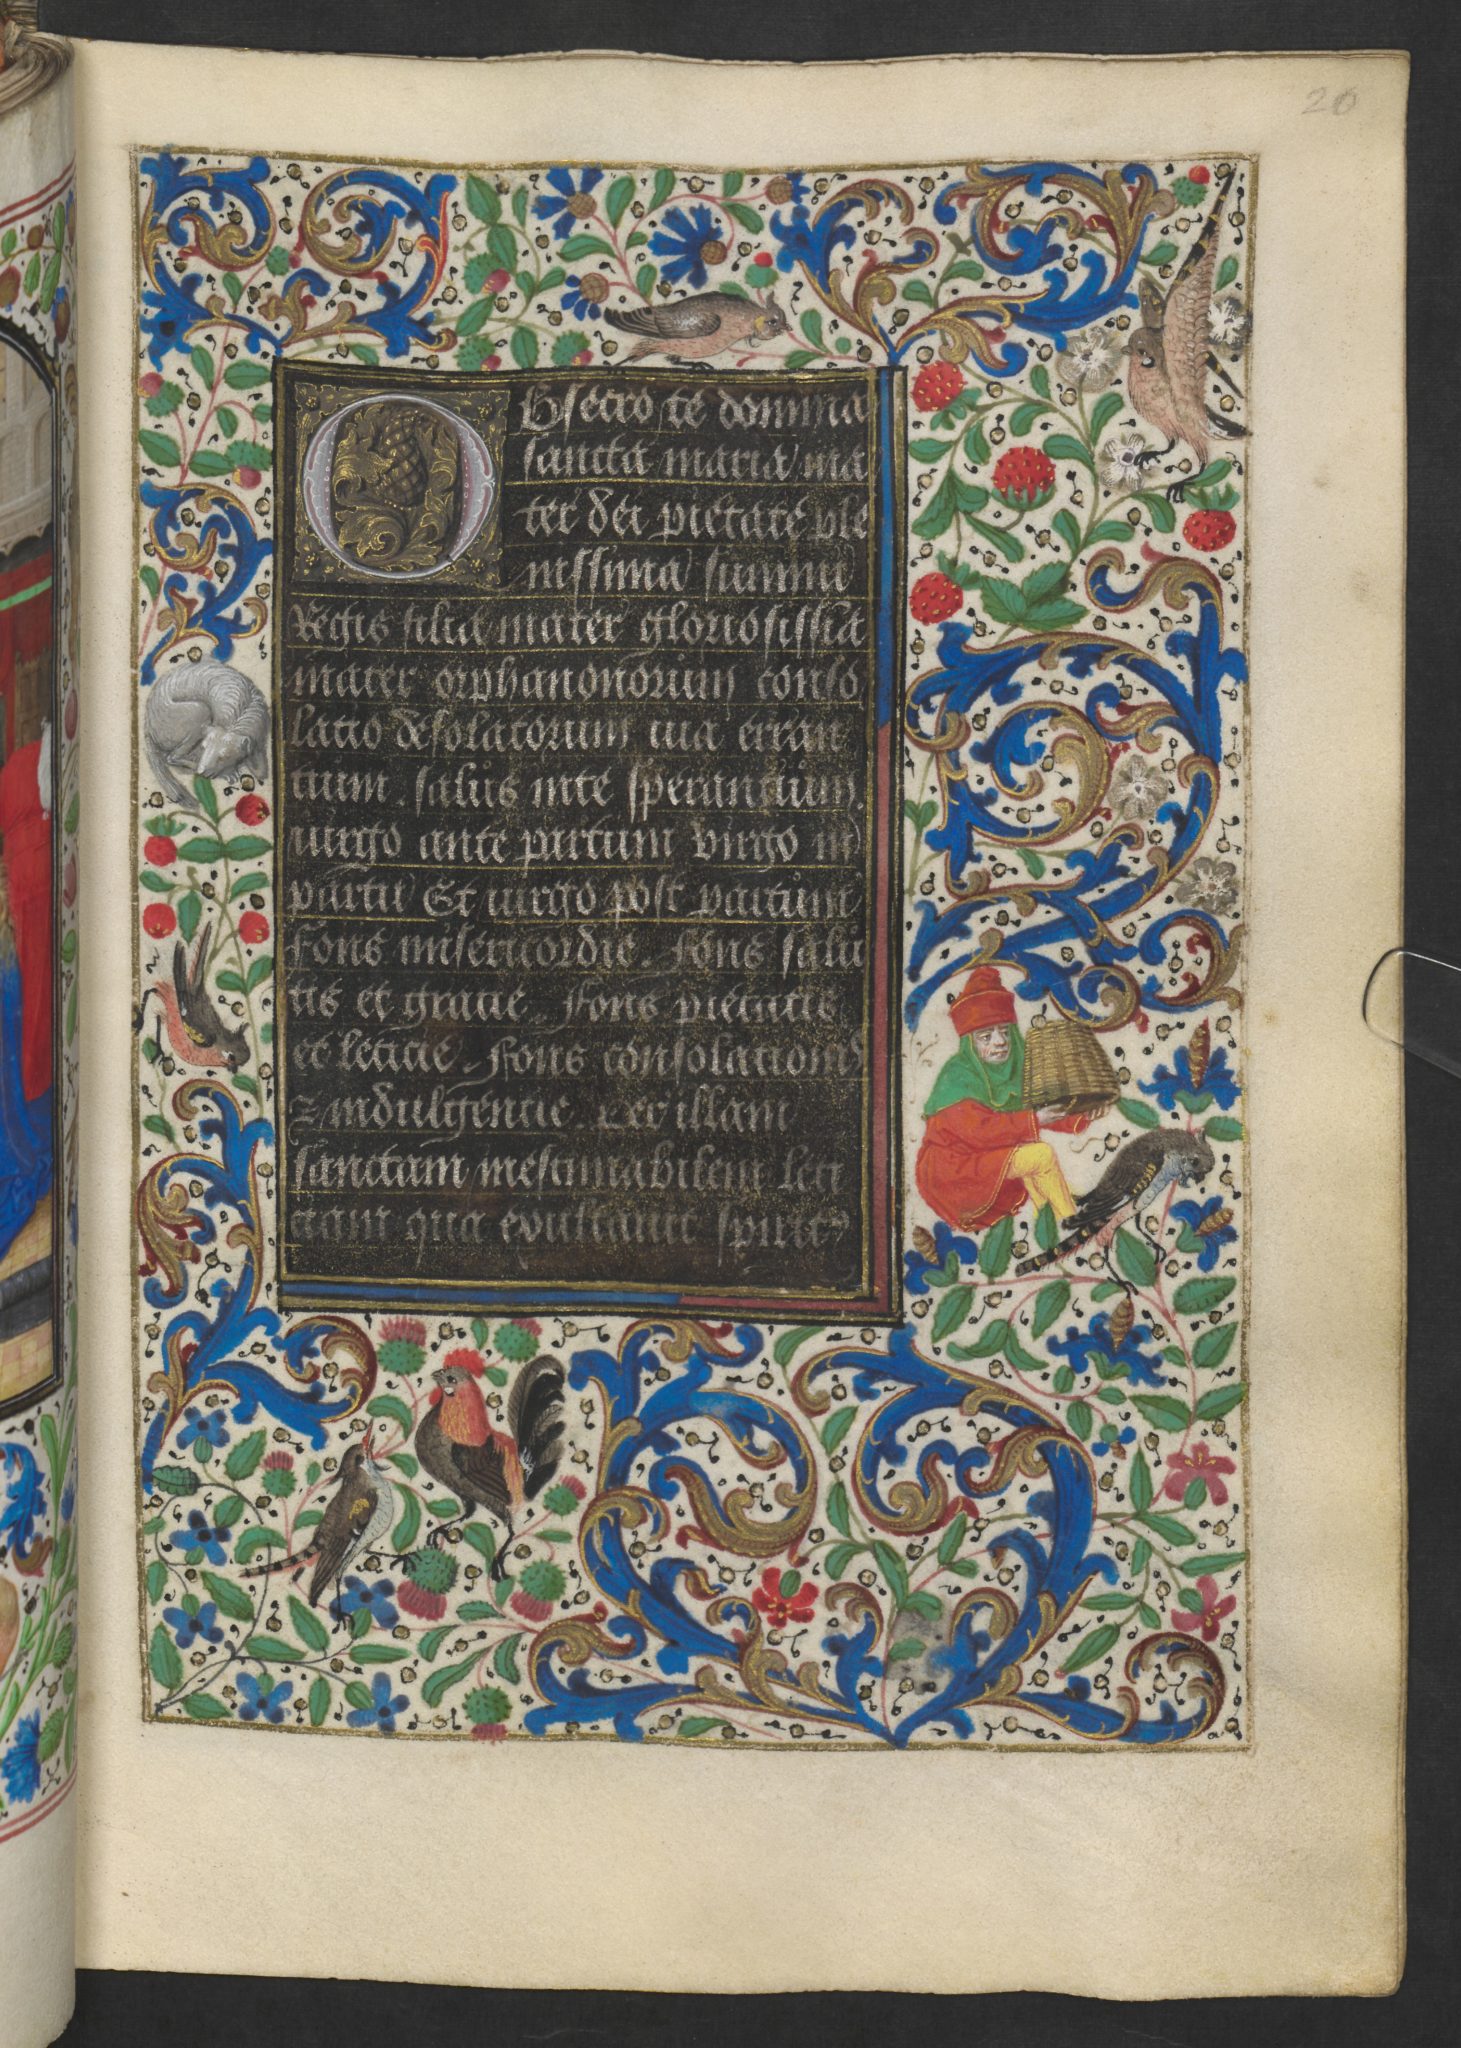 20
Obsecro te domina
sancta maria ma
ter dei pietate ple
nissima summi
Regis filia mater gloriosissia
mater orphanonorium conso
latio desolatorum uia erran
tium. salus inte sperantium.
uirgo ante partum virgo in
partu Et uirgo post partum
Fons misericordie. Fons salu
tis et gracie. Fons pietatis
et leticie. Fons consolationis
z indulgentie. Per illam
sanctam inestimabilem leti
ciam qua exultauit spirit